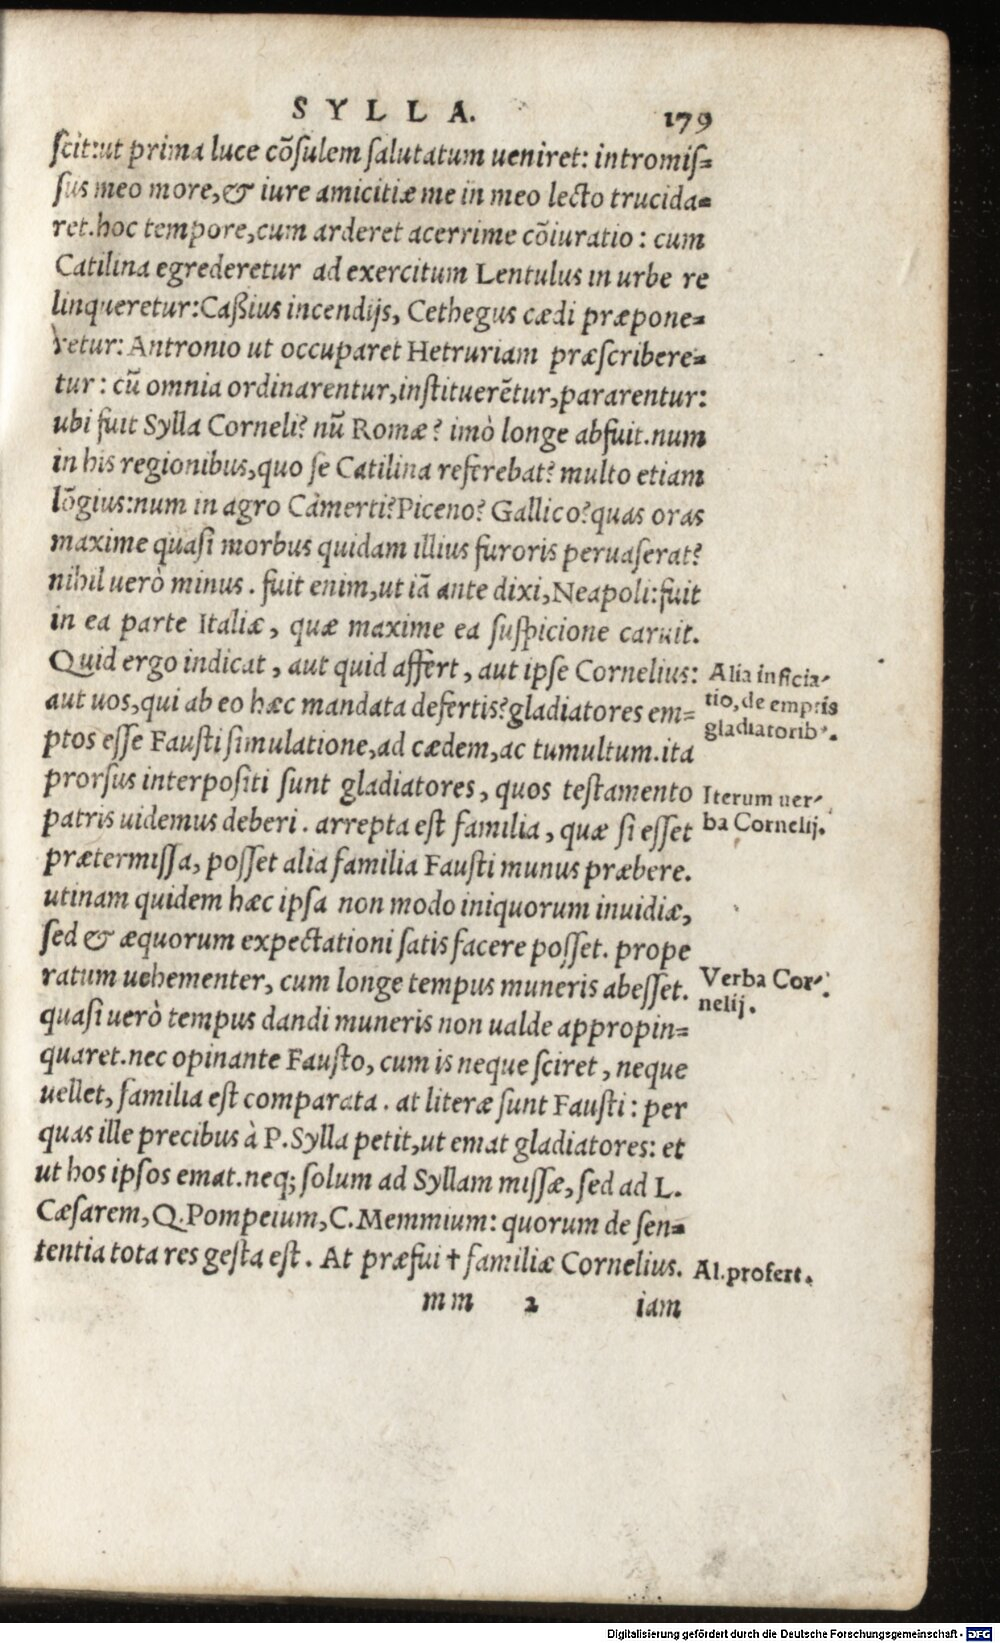 SYLLA. 179
scit:ut prima luce cõsulem salutatum ueniret: intromis=
sus meo more,& iure amicitiæ me in meo lecto trucida=
ret.hoc tempore,cum arderet acerrime cõiuratio: cum
Catilina egrederetur ad exercitum Lentulus in urbe re
linqueretur:Caßius incendijs, Cethegus cædi præpone=
retur: Antronio ut occuparet Hetruriam præscribere=
tur: cũ omnia ordinarentur,instituerẽtur,pararentur:
ubi fuit Sylla Corneli? nũ Romæ? imò longe abfuit.num
in his regionibus,quo se Catilina referebat? multo etiam
lõgius:num in agro Camerti?Piceno? Gallico?quas oras
maxime quasi morbus quidam illius furoris peruaserat?
nihil uerò minus. fuit enim,ut iã ante dixi,Neapoli:fuit
in ea parte Italiæ, quæ maxime ea suspicione caruit.
Quid ergo indicat, aut quid affert, aut ipse Cornelius:
aut uos,qui ab eo hæc mandata defertis?gladiatores em=
ptos esse Fausti simulatione,ad cædem,ac tumultum.ita
prorsus interpositi sunt gladiatores, quos testamento
patris uidemus deberi. arrepta est familia, quæ si esset
prætermissa, posset alia familia Fausti munus præbere.
utinam quidem hæc ipsa non modo iniquorum inuidiæ,
sed & æquorum expectationi satis facere posset. prope
ratum uehementer, cum longe tempus muneris abesset.
quasi uerò tempus dandi muneris non ualde appropin=
quaret.nec opinante Fausto, cum is neque sciret, neque
uellet, familia est comparata. at literæ sunt Fausti: per
quas ille precibus à P.Sylla petit,ut emat gladiatores: et
ut hos ipsos emat.neq; solum ad Syllam missæ, sed ad L.
Cæsarem, Q.Pompeium, C.Memmium: quorum de sen=
tentia tota res gesta est. At præfui † familiæ Cornelius.
mm 2 iam
Alia inficia-
tio,de emptis
gladiatorib'.
Iterum uer-
ba Cornelij.
Verba Cor-
nelij.
Al.profert.
Digitalisierung gefördert durch die Deutsche Forschungsgemeinschaft - DFG